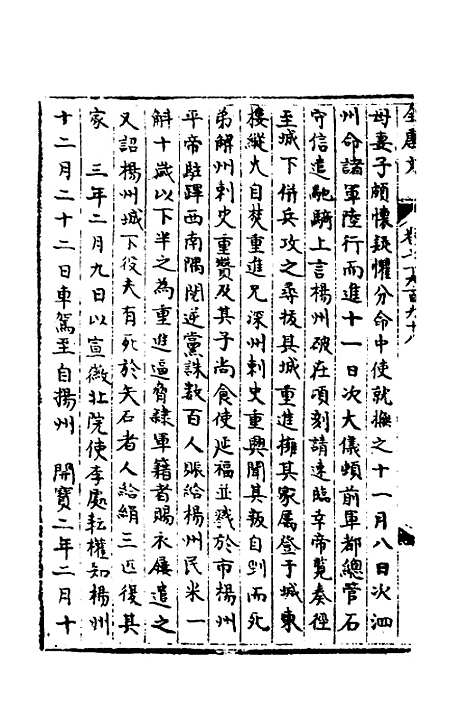 全唐文
母妻子頗懷疑懼分命中使就撫之十一月八日次泗
州命諸軍陸行而進十一日次大儀頓前軍都總管石
守信遣馳騎上言揚州破在頃刻請速臨幸帝覽奏徑
至城下併兵攻之尋拔其城重進擁其家属登于城東
樓縱火自焚重進兄深州刺史重興聞其叛自剄而死
弟解州刺史重贊及其子尚食使延福並戮於市揚州
平帝駐蹕西南隅閱逆黨誅数百人賑給揚州民米一
斛十歲以下半之為重進逼脅隷軍籍者賜衣屨遣之
又詔揚州城下役夫有死於矢石者人給絹三疋復其
家　三年二月九日以宣徽北院使李處耘權知揚州
十二月二十二日車駕至自揚州　開寳二年二月十